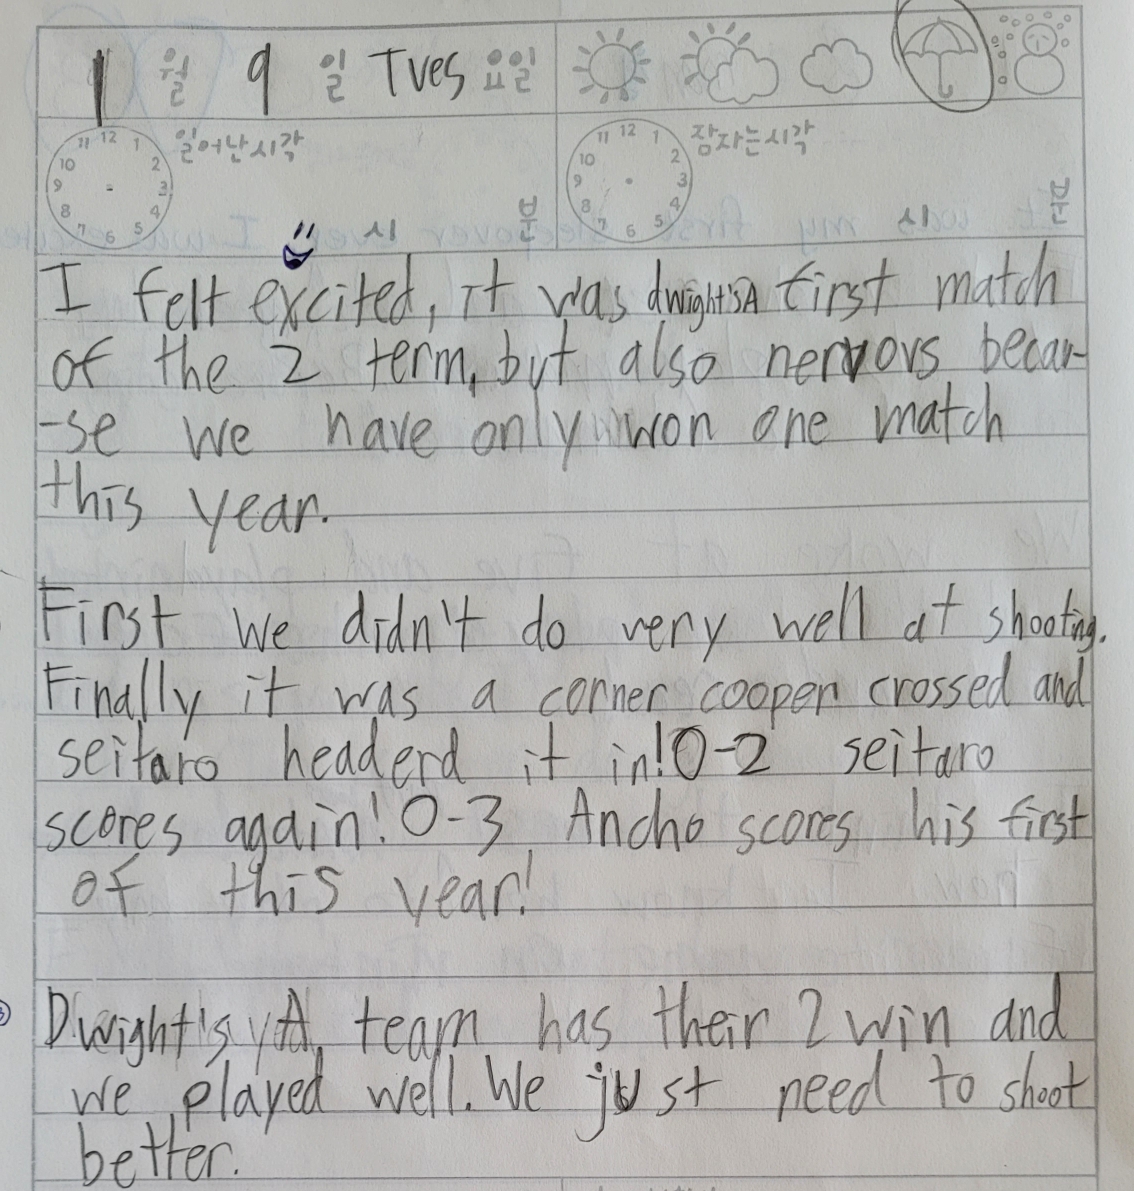 1 월 9 일 Tues 요일
11 12 1 10 2 9 3 8 4 7 6 5
일어난시각
시 분
11 12 1 10 2 9 3 8 4 7 6 5
잠자는시각
시 분
I felt excited, it was dwight's A first match
of the 2 term, but also nervous becau-
-se we have only won one match
this year.
First we didn't do very well at shooting.
Finally it was a corner cooper crossed and
seitaro headerd it in! 0-2 seitaro
scores again! 0-3 Ancho scores his first
of this year!
Dwight's A team has their 2 win and
we played well. We just need to shoot
better.